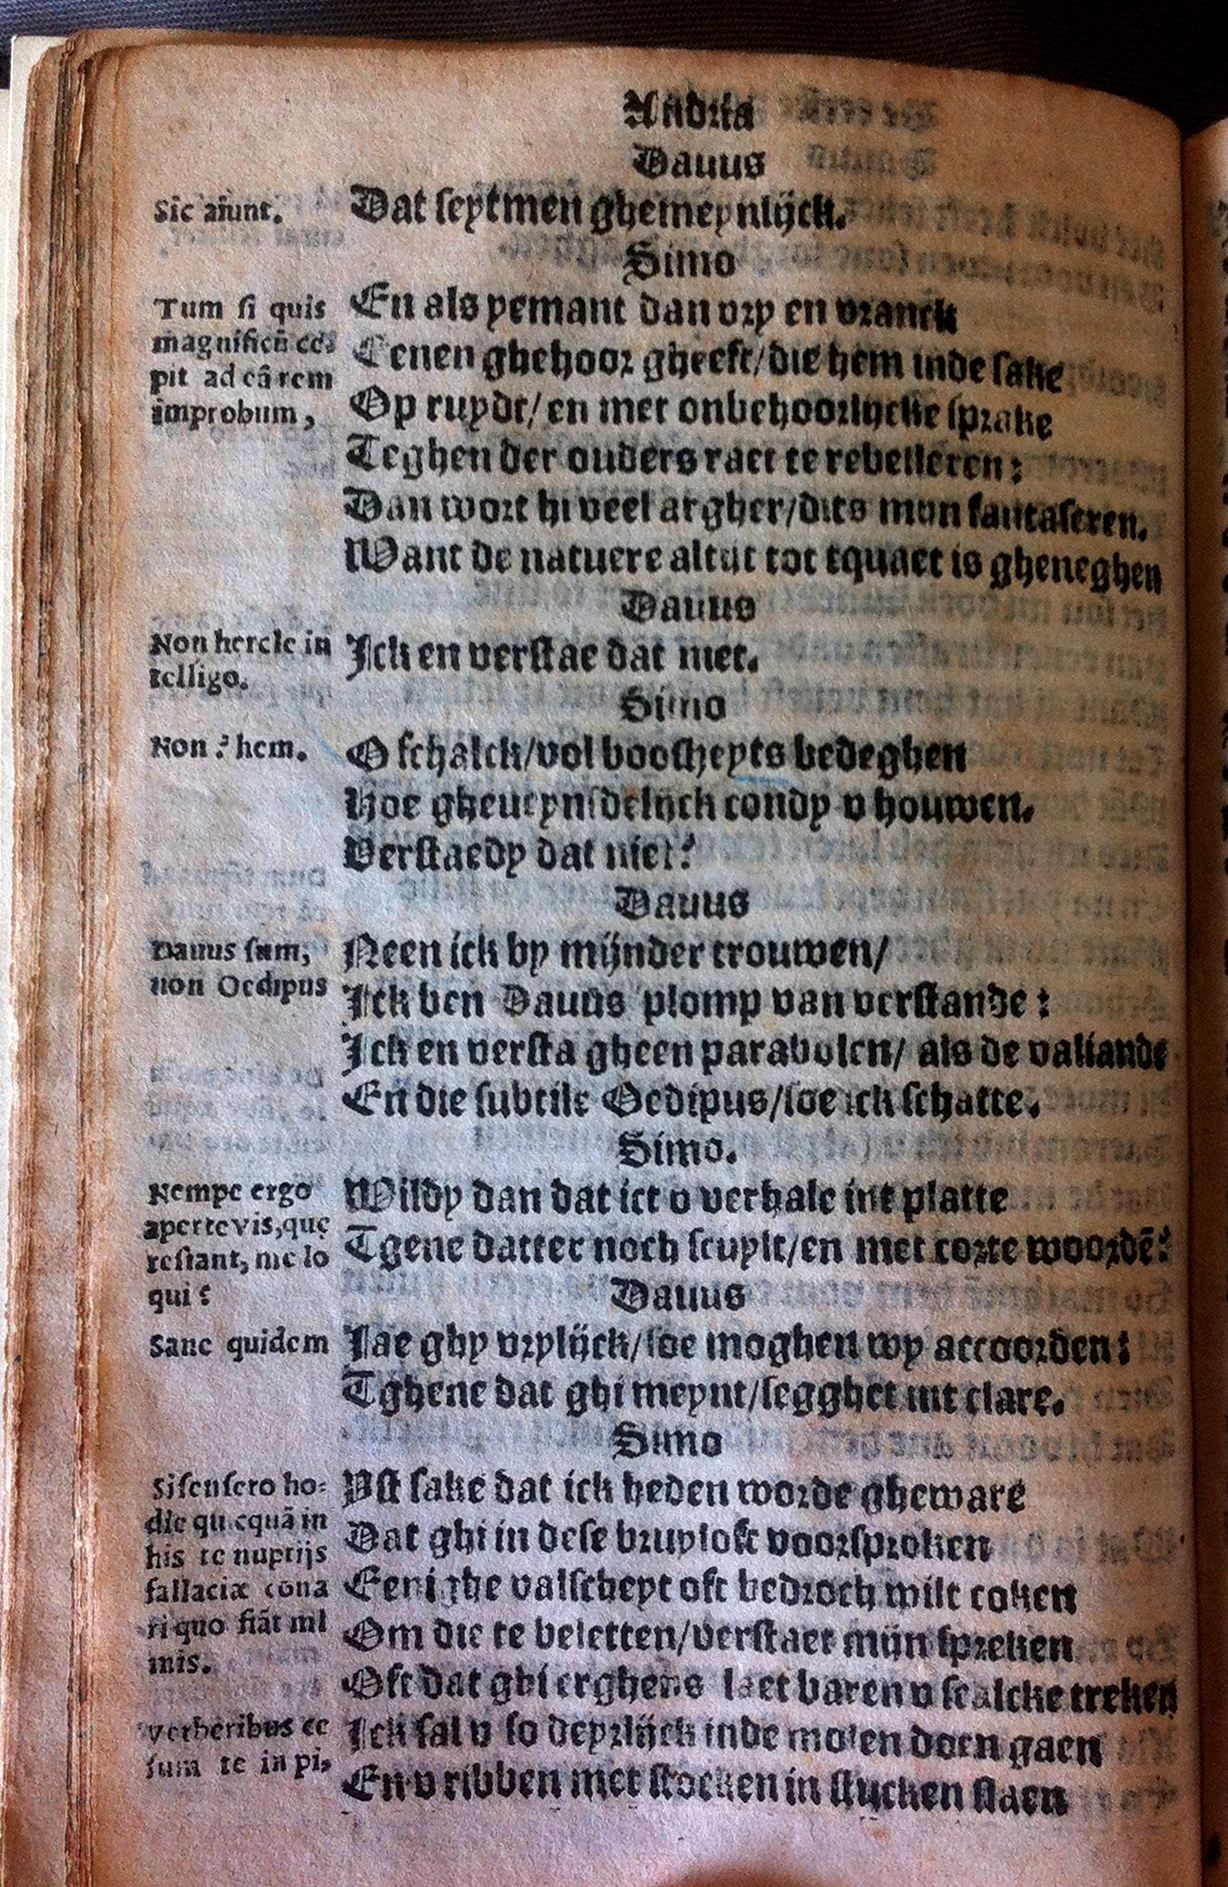 Andria
Dauus
Sic aiunt.
Dat seytmen ghemeynlijck.
Simo
Tum si quis
magnificū ce⸗
pit ad eā rem
improbum,
En als yemant dan vry en vranck
Eenen ghehoor gheeft/die hem inde sake
Op ruydt/en met onbehoorlijcke sprake
Teghen der ouders raet te rebelleren:
Dan wort hi veel argher/dits mijn fantaseren.
Want de natuere altijt tot tquaet is gheneghen
Dauus
Non hercle in
telligo.
Ick en verstae dat niet.
Simo
Non? hem.
O schalck/vol boosheyts bedeghen
Hoe gheueynsdelijck condy v houwen.
Verstaedy dat niet?
Dauus
Dauus sum,
non Oedipus
Neen ick by mijnder trouwen/
Ick ben Dauus plomp van verstande:
Ick en versta gheen parabolen/ als de valiande
En die subtile Oedipus/soe ick schatte.
Simo.
Nempe ergo
aperte vis, que
restant, me lo
qui?
Wildy dan dat ict v verhale int platte
Tgene datter noch scuylt/en met corte woordē?
Dauus
Sane quidem
Jae ghy vrylijck/soe moghen wy accoorden:
Tghene dat ghi meynt/segghet int clare.
Simo
Si sensero ho⸗
die quicquā in
his te nuptijs
fallaciæ cona
ri quo fiāt mi
nis.
Yst sake dat ick heden worde gheware
Dat ghi in dese bruyloft voorsproken
Eenighe valscheyt oft bedroch wilt coken
Om die te beletten/verstaet mijn spreken
Oft dat ghi erghens laet baren v scalcke treken
verberibus cę
sum te in pi⸗
Ick sal v so deyrlijck inde molen doen gaen
En v ribben met stocken in stucken slaen